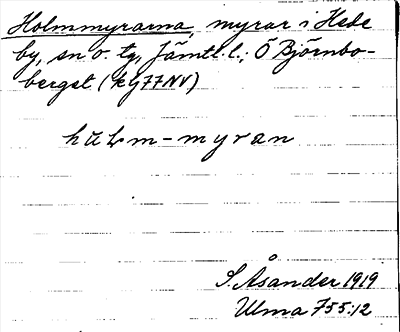 Holmmyrarna, myrar i Hede
by, sn o. tg, Jämtl. l.; Ö Björnbo-
berget (kg77NV)
hŭɫm-myran
S. Åsander 1919
Ulma 755:12